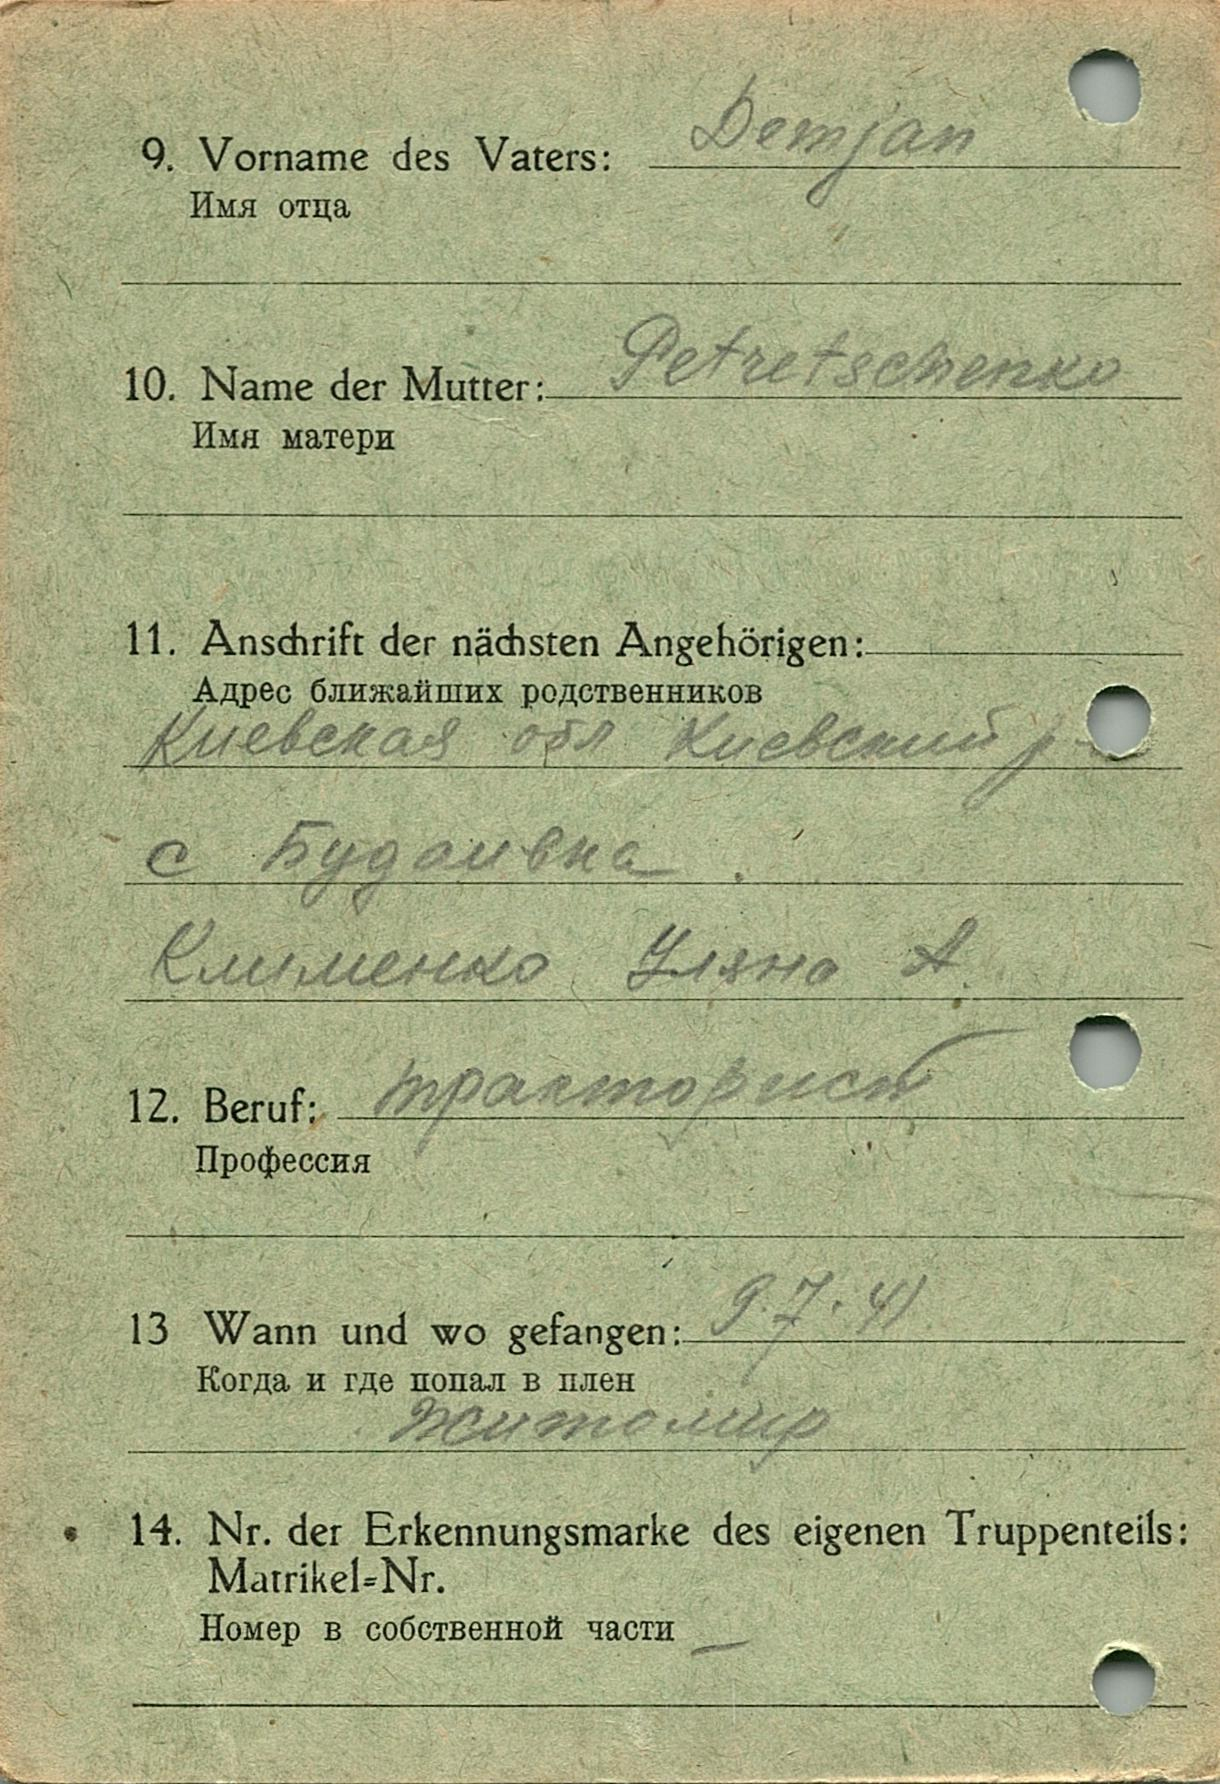 9. Vorname des Vaters: Demjan
Имя отца
10. Name der Mutter: Petretschenko
Имя матери
11. Anschrift der nächsten Angehörigen:
Адрес ближайших родственников
Киевская обл Киевский р-
с Будаивка
Клименко Уляна А
12. Beruf: тракторист
Профессия
13 Wann und wo gefangen: 9.7.41
Когда и где попал в плен
Житомир
14. Nr. der Erkennungsmarke des eigenen Truppenteils:
Matrikel=Nr.
Номер в собственной части –